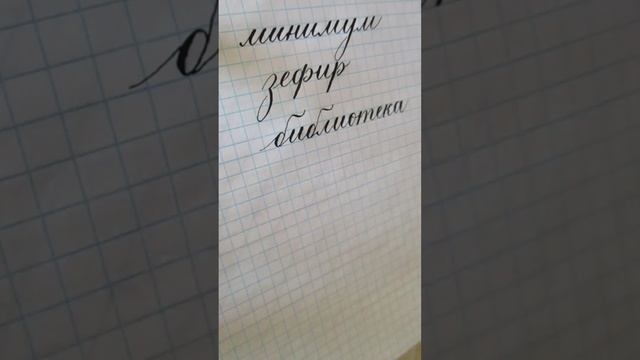 минимум
зефир
библиотека